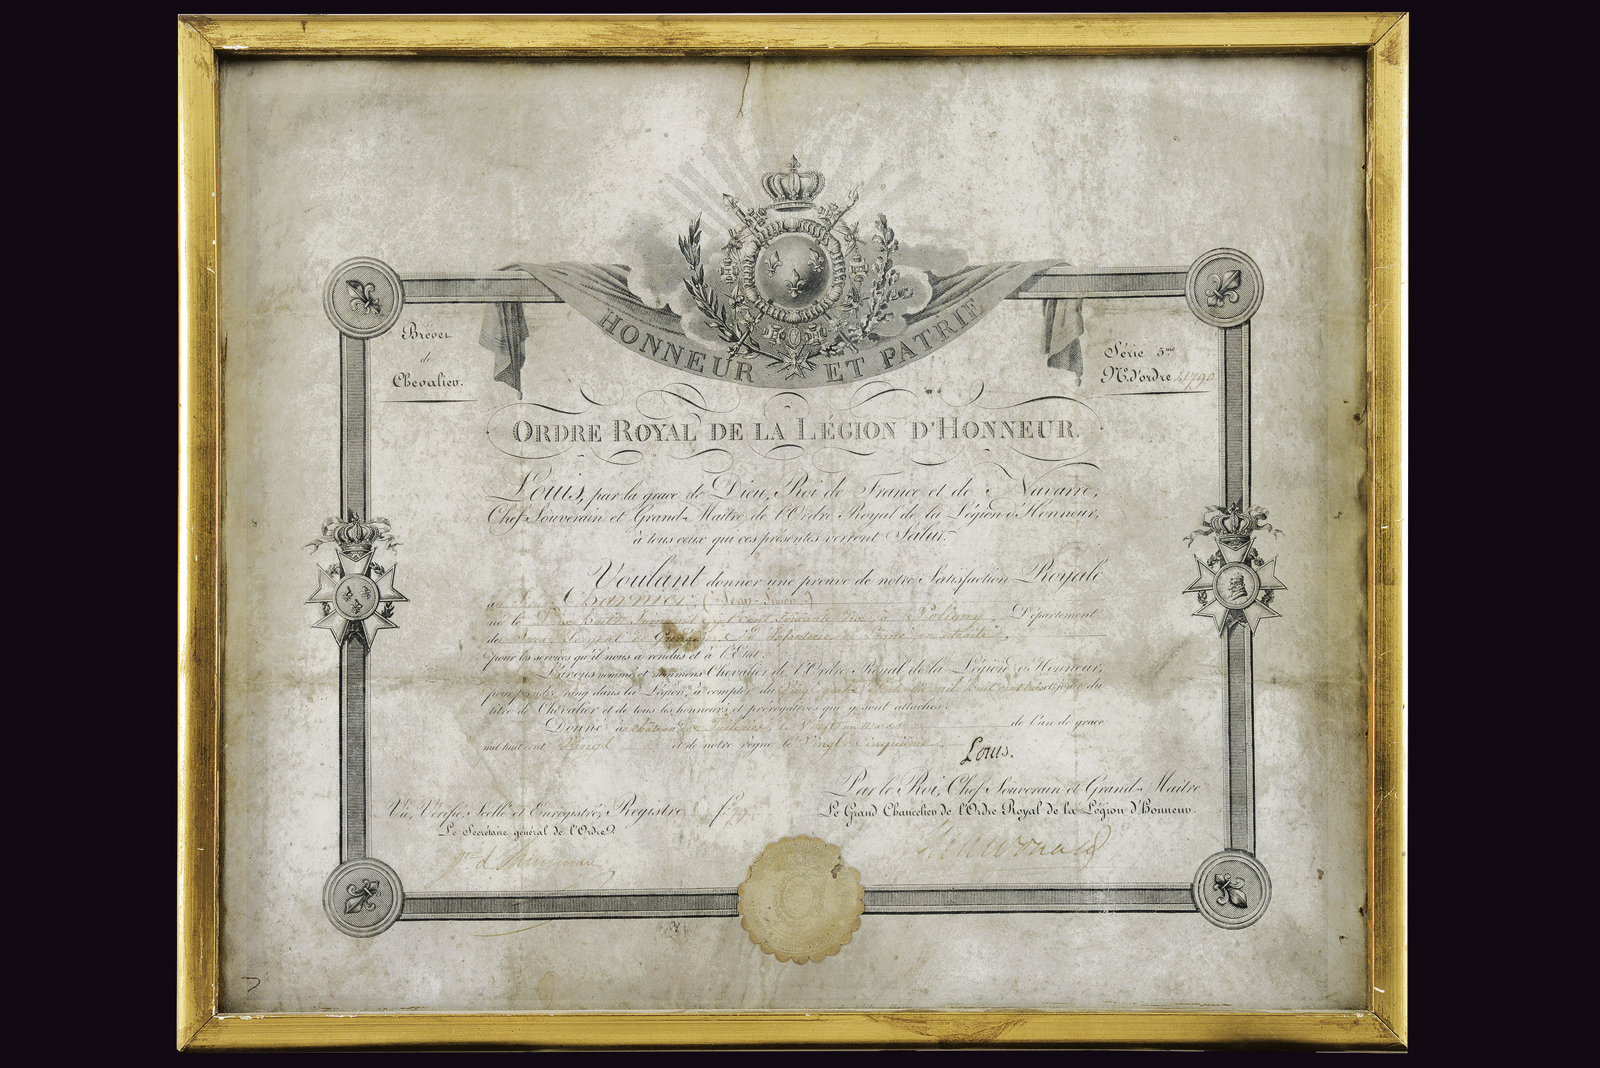 HONNEUR ET PATRIE
Brevet
de
Chevalier.
Série 5.me
N.o d'ordre
ORDRE ROYAL DE LA LÉGION D'HONNEUR.
Louis, par la grace de Dieu, Roi de France et de Navarre,
Chef Souverain et Grand-Maitre de l'Ordre Royal de la Légion d'Honneur,
à tous ceux qui ces présentes verront Salut.
Voulant donner une preuve de notre Satisfaction Royale
au (Jean
né le mil sept cent soixante dix à Poligny, Département
du Jura, Sergent de en retraite
pour les services qu'il nous a rendus et à l'Etat;
L'avons nommé et nommons Chevalier de l'Ordre Royal de la Légion d'Honneur,
pour prendre rang dans la Légion, à compter du Vingt mil huit cent et jouir du
titre de Chevalier et de tous les honneurs et prérogatives qui y sont attachés.
Donné à château de le Mars de l'an de grace
mil huit cent Vingt et de notre règne le Vingt-Cinquième
Louis.
Par le Roi, Chef Souverain et Grand-Maitre
Le Grand Chancelier de l'Ordre Royal de la Légion d'Honneur.
Vu, Vérifié, Scellé et Enregistré, Registre f.o
Le Secrétaire général de l'Ordre